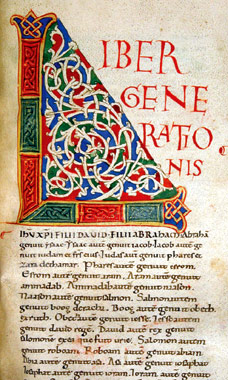 LIBER
GENE
RATIO
NIS
IHV XPI FILII DAVID FILII ABRAham Abrahā
genuit ysac ysac autē genuit iacob Iacob autē ge
nuit iudam et fr̄s eius Iudas autē genuit phares et
zara dethamar. Phares autē genuit esrom.
Esrom autē genuit aram. Aram autē genuit
aminadab. Aminadab autē genuit naason.
Naason autē genuit salmon. Salmon autem
genuit booz deracab. Booz autē genuit obeth
exruth. Obeth autē genuit iesse. Iesse autem
genuit david regē. David autē rex genuit
salomonē ex ea que fuit urie. Salomon autem
genuit roboam. Roboam autē genuit abiam.
Abia autē genuit asa. Asa autē genuit iosaphat
Iosaphat autē genuit ioram. Ioram autē genuit